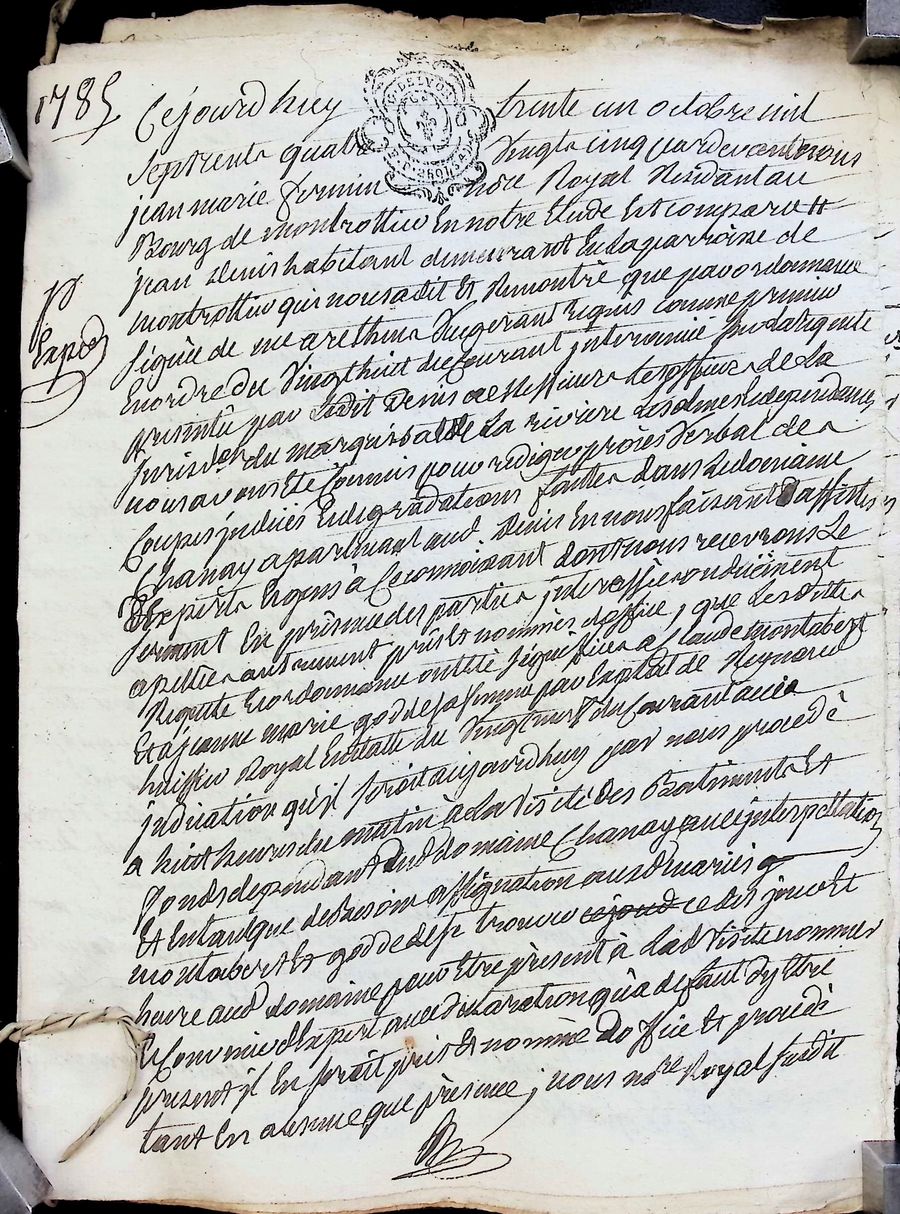 1785
Cejourdhuy trente un octobre mil
sept cents quatre Vingts cinq pardevant nous
jean marie fermin no.re Royal Residant au
Bourg de montrottier En notre Etude Est comparu
jean Denis habitant demeurant En la parroisse de
montrottier qui nous a dit Et Remontré que par ordonnance
signée de me arethin Vugerant Requis comme premier
En ordre du Vingt huit du Courant intervenue sur la Requete
presentée par Ledit Denis a Messieurs Les officiers de La
jurisd.on du marquisat de La riviere Les olmes Et dependances
nous avons été Commis pour rediger procès Verbal des
Coupes judiciés Et degradations faittes dans Le domaine
Chanay apartenant aud. Denis En nous faisant assister
D'Experts Enpens à Ce connoissant dont nous recevrons Le
serment En presence des parties interessées ou duëment
apellées autrement pris Et nommés d'office, que Lesdittes
Requette Et ordonnance ont été signiffiées a Claude montabert
Et a jeanne marie godde sa femme par Exploit de Reynard
huissier Royal En datte du Vingt neuf du Courant avec
jndication qu'il seroit aujourdhuy par nous procedé
a huit heures du matin à La Visite des Batiments Et
fonds dependant dud. domaine Chanay avec jnterpellation
Et En tant que de Besoin assignation auxd. mariés
montabert Et godde de se trouver cejourd ce dit jour Et
heure aud. domaine pour Etre present à Lad. Visite nommer
Et Convenir d'Expert avec declaration qu'a defaut d'y Etre
present il En seroit pris Et nommé Doffice Et procedé
tant En absence que presence ; nous no.re Royal susdit
p.r
Exped